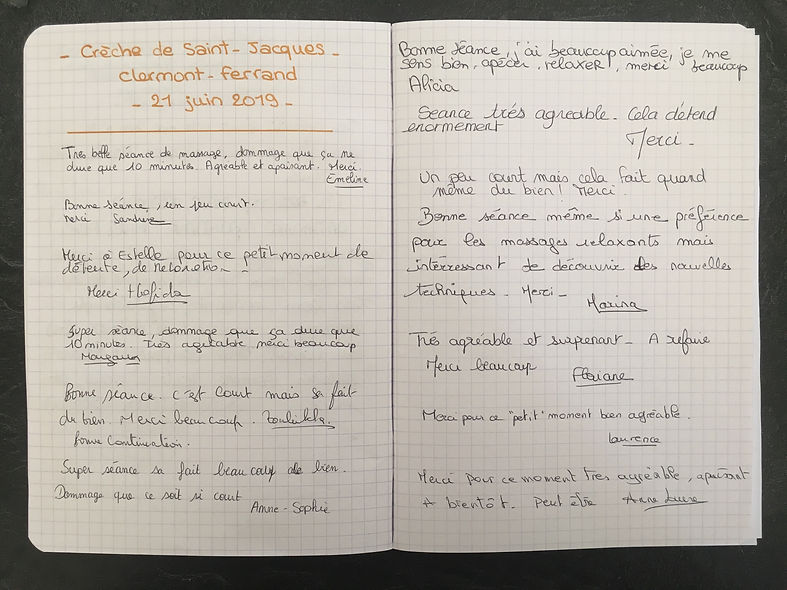 - Crèche de Saint-Jacques -
Clermont-Ferrand
- 21 juin 2019 -
Très belle séance de massage, dommage que ça ne
dure que 10 minutes. Agréable et apaisant. Merci.
Emeline
Bonne séance, un peu court.
Merci Sandrine
Merci à Estelle pour ce petit moment de
détente, de
Merci Hafida
Super séance, dommage que ça dure que
10 minutes. Très agréable, merci beaucoup
Bonne séance. C'est court mais sa fait
du bien. Merci beaucoup.
bonne continuation.
Super séance sa fait beaucoup de bien.
Dommage que ce soit si court
Anne-Sophie
Bonne séance, j'ai beaucoup aimée, je me
sens bien, apécer, relaxer, merci beaucoup
Alicia
Seance trés agreable. Cela détend
enormement
Merci.
Un peu court mais cela fait quand
même du bien! Merci.
Bonne séance même si une préférence
pour les massages relaxants mais
intérressant de découvrir des nouvelles
techniques. Merci -
Marina
Trés agréable et surprenant - A refaire
Merci beaucoup
Floriane
Merci pour ce "petit" moment bien agréable.
Laurence
Merci pour ce moment très agréable, apaisant
A bientôt. Peut être Anne Laure